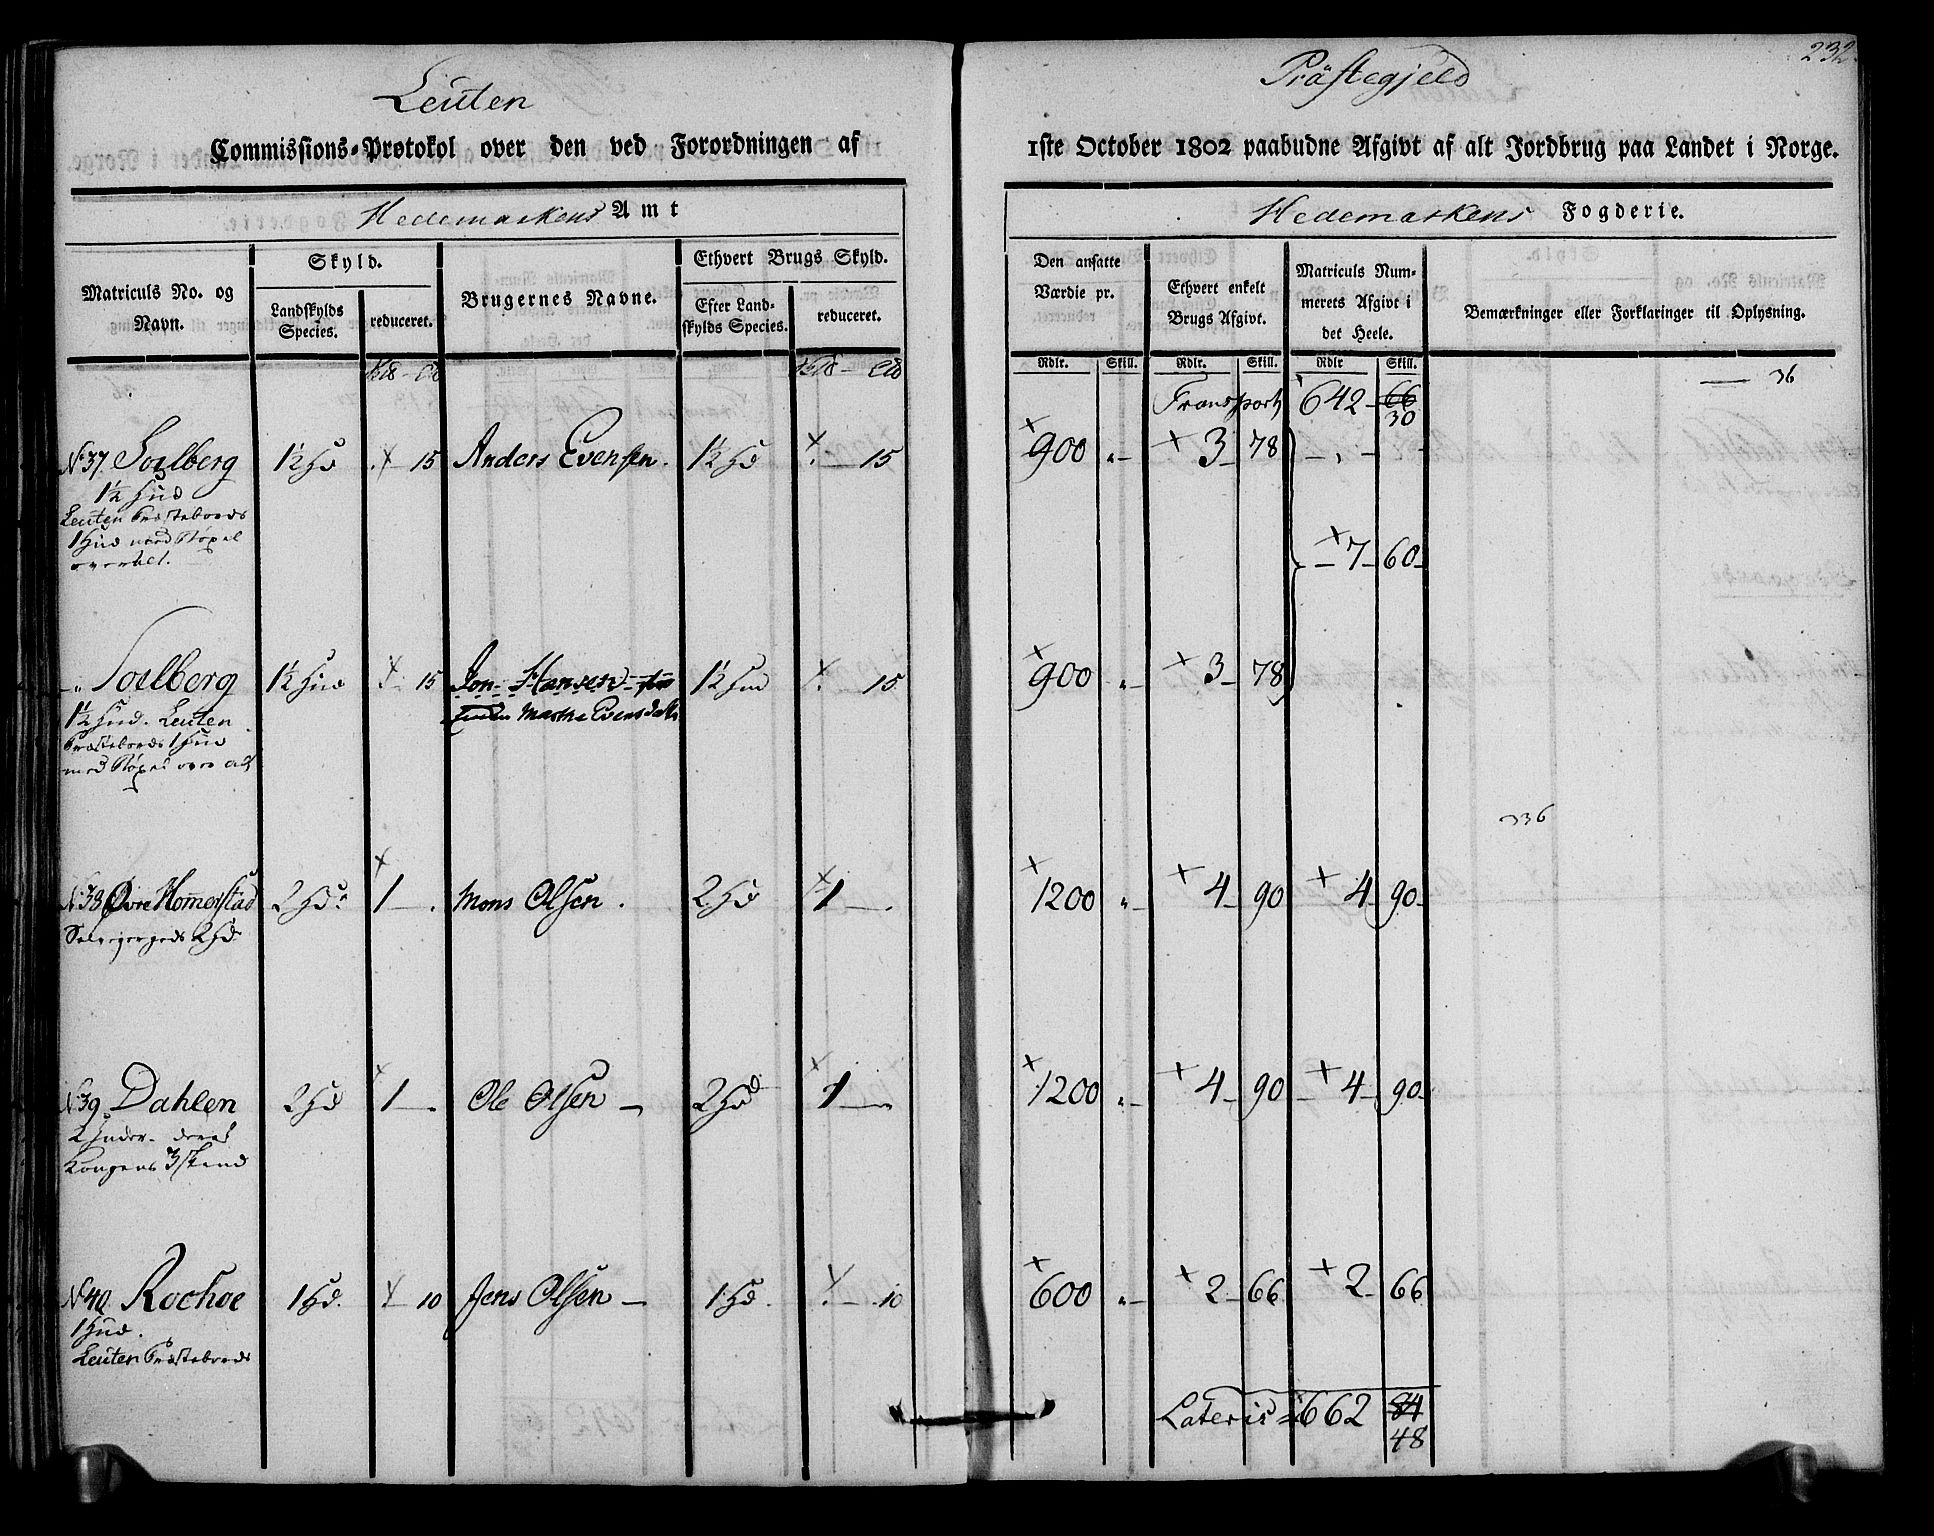 232
Leuten Præstegjeld
Commissions-Protokol over den ved Forordningen af 1ste October 1802 paabudne Afgivt af alt Jordbrug paa Landet i Norge.
Hedemarkens Amt
Hedemarkens Fogderie.
Matriculs No. og Navn.
Skyld.
Landskylds Species.
reduceret.
Brugernes Navne.
Ethvert Brugs Skyld.
Efter Landskylds Species.
reduceret.
Den ansatte Værdie pr.
Ethvert enkelt Brugs Afgivt.
Matriculs Nummerets Afgivt i det Heele.
Bemærkninger eller Forklaringer til Oplysning.
Rdlr. Skill. Rdlr. Skill. Rdlr Skill.
Transport 642 66 36
30
No 37 Soelberg 1½ Hd 15 Anders Evensen. 1½ Hd 15 900 „ 3 78
1½ Hud
Leuten Præstebords
1 Hud med Bøxel
over alt.
7 60
„ Soelberg 1½ Hud 15 Jon Hansen 1½ Hud 15 900 „ 3 78
1½ Hud. Leuten Marthe Evensdatter
Præstebords 1 Hud
med Bøxel over alt
336
No 38 Øvre Hommerstad 2 Hd. 1 Mons Olsen. 2 Hd 1 1200 „ 4 90 4 90
Selvejergods 2 Hd
No 39 Dahlen 2 Hd 1 Ole Olsen 2 Hd 1 1200 „ 4 90 4 90
2 Huder
Kongens 3 skind
No 40 Rochoe 1 Hd. 10 Jens Olsen 1 Hd. 10 600 „ 2 66 2 66
1 Hud.
Leuten Præstebords
Lateris 662 84
48